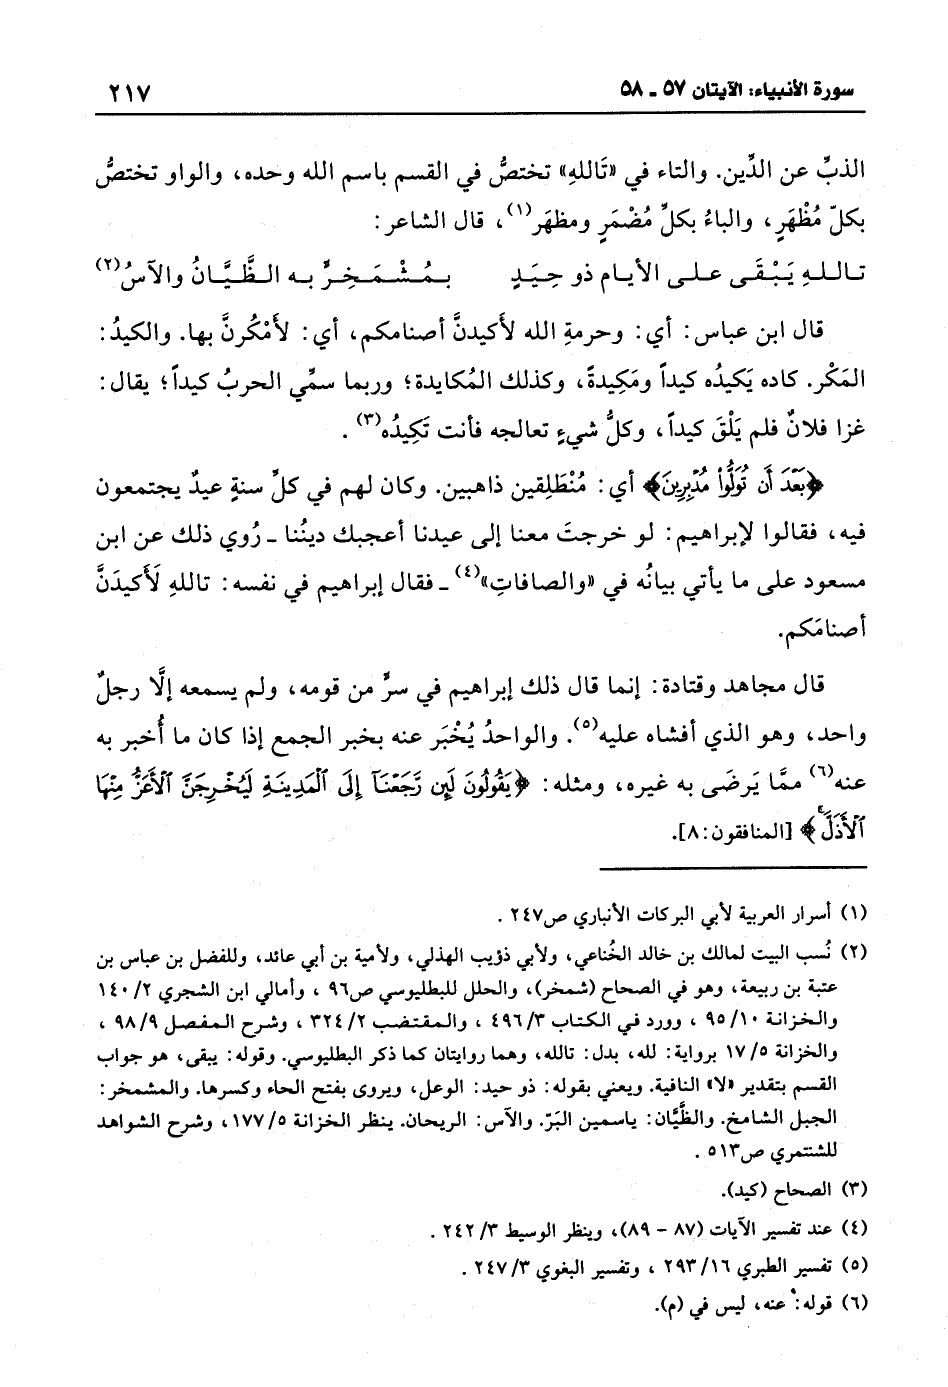 سورة الأنبياء: الآيتان ٥٧ ـ ٥٨ ٢١٧
الذبِّ عن الدِّين. والتاء في «تَاللهِ» تختصُّ في القسم باسم الله وحده، والواو تختصُّ
بكلّ مُظْهَرٍ، والباءُ بكلِّ مُضْمَرٍ ومظهَر(١)، قال الشاعر:
تـاللهِ يَـبْـقَـى عـلـى الأيـام ذو حِـيَـدٍ بـمُـشْـمَـخِـرٍّ بـه الـظَّـيَّـانُ والآسُ(٢)
قال ابن عباس: أي: وحرمةِ الله لأَكيدنَّ أصنامكم، أي: لأمْكُرنَّ بها. والكيدُ:
المَكْر. كاده يَكيدُه كيداً ومَكِيدةً، وكذلك المُكايدة؛ وربما سمِّي الحربُ كيداً؛ يقال:
غزا فلانٌ فلم يَلْقَ كيداً، وكلُّ شيءٍ تعالجه فأنت تَكِيدُه(٣).
﴿بَعْدَ أَن تُوَلُّواْ مُدْبِرِينَ﴾ أي: مُنْطَلِقين ذاهبين. وكان لهم في كلِّ سنةٍ عيدٌ يجتمعون
فيه، فقالوا لإبراهيم: لو خرجتَ معنا إلى عيدنا أعجبك دينُنا ـ رُوي ذلك عن ابن
مسعود على ما يأتي بيانُه في «والصافاتِ»(٤) ـ فقال إبراهيم في نفسه: تاللهِ لَأَكيدَنَّ
أصنامَكم.
قال مجاهد وقتادة: إنما قال ذلك إبراهيم في سرٍّ من قومه، ولم يسمعه إلَّا رجلٌ
واحد، وهو الذي أفشاه عليه(٥). والواحدُ يُخْبَر عنه بخبر الجمع إذا كان ما أُخبر به
عنه(٦) ممَّا يَرضَى به غيره، ومثله: ﴿يَقُولُونَ لَئِن رَّجَعْنَآ إِلَى ٱلْمَدِينَةِ لَيُخْرِجَنَّ ٱلْأَعَزُّ مِنْهَا
ٱلْأَذَلَّ﴾ [المنافقون:٨].
(١) أسرار العربية لأبي البركات الأنباري ص٢٤٧.
(٢) نُسب البيت لمالك بن خالد الخُناعي، ولأبي ذؤيب الهذلي، ولأمية بن أبي عائد، وللفضل بن عباس بن
عتبة بن ربيعة، وهو في الصحاح (شمخر)، والحلل للبطليوسي ص٩٦، وأمالي ابن الشجري ٢/ ١٤٠
والخزانة ١٠/ ٩٥، وورد في الكتاب ٣/ ٤٩٦، والمقتضب ٢/ ٣٢٤، وشرح المفصل ٩/ ٩٨،
والخزانة ٥/ ١٧ برواية: لله، بدل: تالله، وهما روايتان كما ذكر البطليوسي. وقوله: يبقى، هو جواب
القسم بتقدير «لا» النافية. ويعني بقوله: ذو حيد: الوعل، ويروى بفتح الحاء وكسرها. والمشمخر:
الجبل الشامخ. والظَّيَّان: ياسمين البَرّ. والآس: الريحان. ينظر الخزانة ٥/ ١٧٧، وشرح الشواهد
للشنتمري ص٥١٣.
(٣) الصحاح (كيد).
(٤) عند تفسير الآيات (٨٧ - ٨٩)، وينظر الوسيط ٣/ ٢٤٢.
(٥) تفسير الطبري ١٦/ ٢٩٣، وتفسير البغوي ٣/ ٢٤٧.
(٦) قوله: عنه، ليس في (م).